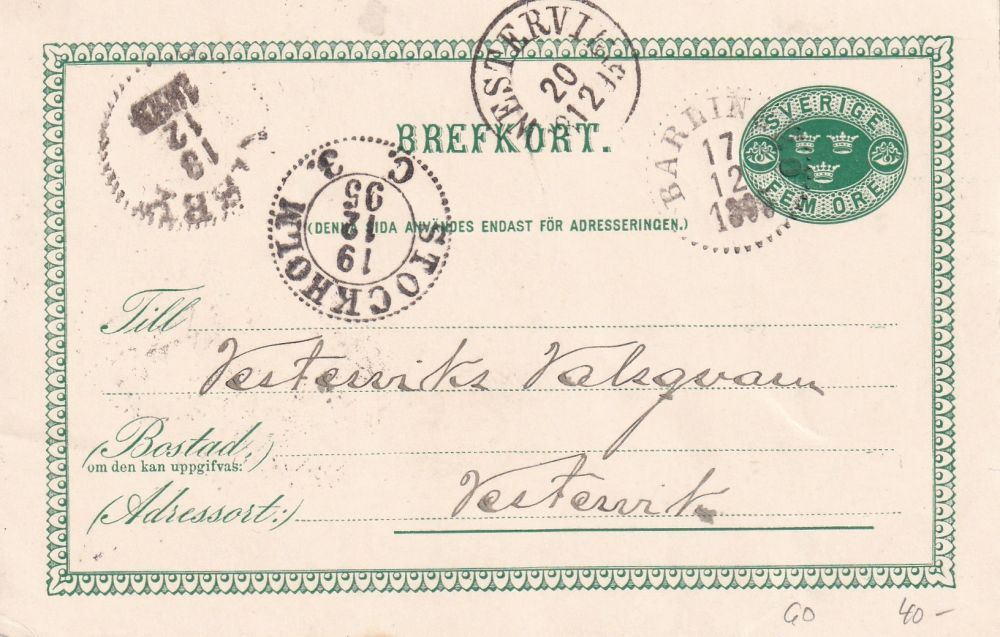 VESTERVIK
20
12 95
BREFKORT.
BARLIN
17
12
SVERIGE
FEM ÖRE
18
12
STOCKHOLM
C. 3
19
12
95
(DENNA SIDA ANVÄNDES ENDAST FÖR ADRESSERINGEN.)
Till
Vesterviks Valsqvarn
(Bostad,)
om den kan uppgifvas:
(Adressort:)
Vestervik
60 40-